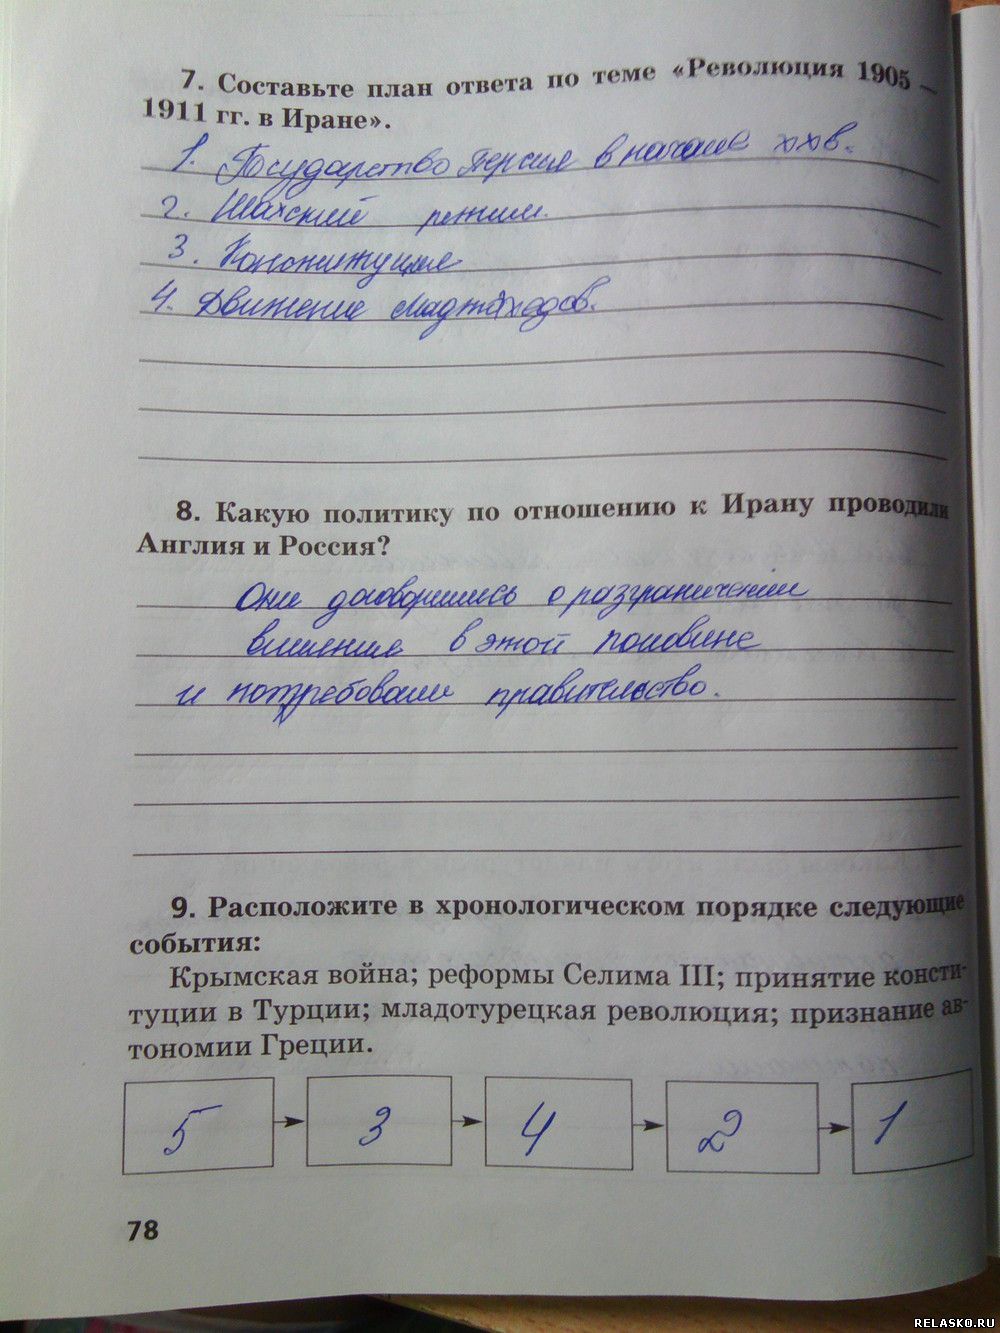 7. Составьте план ответа по теме «Революция 1905 –
1911 гг. в Иране».
1. Государство Персия в начале XX в.
2. Шахский режим.
3. Конституция
4. Движение маджахедов.
8. Какую политику по отношению к Ирану проводили
Англия и Россия?
Они договорились о разграничении
влияние в этой половине
и потребовали правительство.
9. Расположите в хронологическом порядке следующие
события:
Крымская война; реформы Селима III; принятие консти-
туции в Турции; младотурецкая революция; признание ав-
тономии Греции.
5 3 4 2 1
78
RELASKO.RU